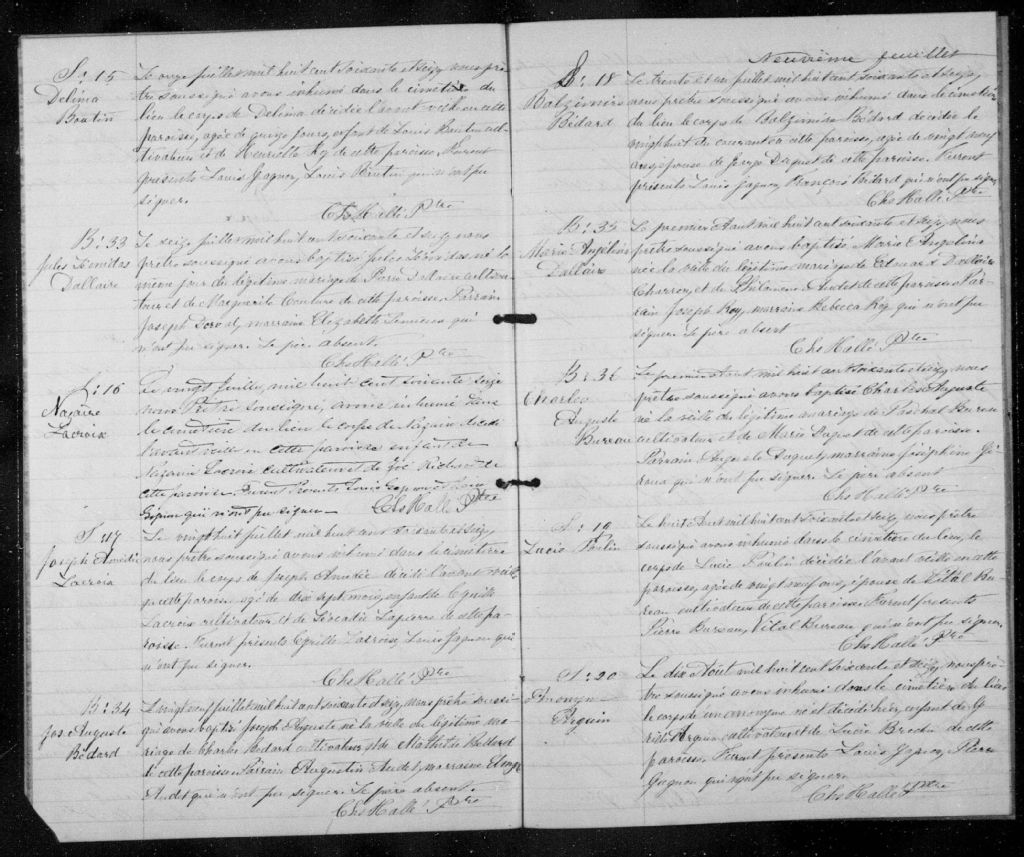 S: 15
Delima
Boutin
Le onze juillet mil huit cent soixante et seize nous prê-
tre soussigné avons inhumé dans le cimetière du
lieu le corps de Delima décédée l'avant veille en cette
paroisse, agée de quinze jours, enfant de Louis Boutin cul-
tivateur et de Henriette Roy de cette paroisse. Furent
presents Louis Gagnon, Louis Boutin qui n'ont pu
signer.
Chs Hallé Ptre
B: 33
Jules
Dallaire
Le seize juillet mil huit cent soixante et seize nous
prêtre soussigné avons baptisé Jules né le
même jour du légitime mariage de cultiva-
teur et de Marguerite Couture de cette paroisse. Parrain
Joseph marraine Elizabeth qui
n'ont pu signer. Le père absent.
Chs Hallé Ptre
S: 16
Nazaire
Lacroix
Le vingt Juillet mil huit cent soixante seize
nous Prêtre soussigné, avons inhumé dans
le cimetière du lieu le corps de Nazaire décédé
l'avant veille en cette paroisse enfant de
Nazaire Lacroix cultivateur et de
cette paroisse. Furent Presents Louis Gagnon
Gagnon qui n'ont pu signer.
Chs Hallé Ptre
S: 17
Joseph Amédée
Lacroix
Le vingt huit juillet mil huit cent soixante et seize,
nous prêtre soussigné avons inhumé dans le cimetière
du lieu le corps de Joseph Amédée décédé l'avant veille
en cette paroisse agé de dix sept mois, enfant de
Lacroix cultivateur et de Léocadie Lapierre de cette pa-
roisse. Furent présents Lacroix, Louis Gagnon qui
n'ont pu signer.
Chs Hallé Ptre
B: 34
Jos Auguste
Bédard
Le vingt neuf juillet mil huit cent soixante et seize, nous prêtre soussi-
gné avons baptisé Joseph Auguste né la veille du légitime ma-
riage de Charles Bédard cultivateur et de Mathilde
de cette paroisse. Parrain Augustin Audet, marraine
Audet qui n'ont pu signer. Le père absent.
Chs Hallé Ptre
Neuvième feuillet
S: 18
Balzimire
Bédard
Le trente et un juillet mil huit cent soixante et seize,
nous prêtre soussigné avons inhumé dans le cimetière
du lieu le corps de Balzimire Bédard décédée le
vingt huit du courant en cette paroisse, agée de vingt neuf
ans, épouse de Duquet de cette paroisse. Furent
présents Louis Gagnon, François Bédard qui n'ont pu signer
Chs Hallé Ptre
B: 35
Marie Angelina
Dallaire
Le premier Aout mil huit cent soixante et seize, nous
prêtre soussigné avons baptisé Marie Angelina
née la veille du légitime mariage de Edouard Dallaire
Charron, et de Philomène Audet de cette paroisse. Par-
rain Joseph Roy, marraine Rebecca Roy qui n'ont pu
signer. Le père absent
Chs Hallé Ptre
B: 36
Charles
Auguste
Bureau
Le premier Aout mil huit cent soixante et seize, nous
prêtre soussigné avons baptisé Charles Auguste
né la veille du légitime mariage de Paschal Bureau
cultivateur et de Marie Duquet de cette paroisse.
Parrain Auguste Duquet, marraine Joséphine Gi-
roux qui n'ont pu signer. Le père absent
Chs Hallé Ptre
S: 19
Lucie Poulin
Le huit Aout mil huit cent soixante et seize, nous prêtre
soussigné avons inhumé dans le cimetière du lieu, le
corps de Lucie Poulin décédée l'avant veille en cette
paroisse, agée de vingt neuf ans, épouse de Vital Bu-
reau cultivateur de cette paroisse. Furent présents
Pierre Bureau, Vital Bureau qui n'ont pu signer.
Chs Hallé Ptre
S: 20
Anonyme
Arguin
Le dix Août mil huit cent soixante et seize, nous prê-
tre soussigné avons inhumé dans le cimetière du lieu
le corps d'un anonyme né et décédé hier, enfant de
Arguin cultivateur et de Lucie de cette
paroisse. Furent présents Louis Gagnon, Pierre
Gagnon qui n'ont pu signer.
Chs Hallé Ptre